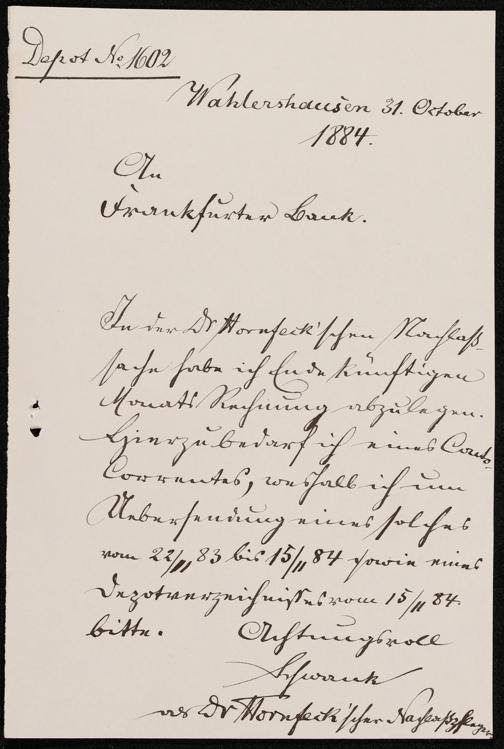 Depot No. 1602
Wahlershausen 31. October
1884.
An
Frankfurter Bank.
In der Dr Hornfeck'schen Nachlaß-
sache habe ich Ende künftigen
Monats Rechnung abzulegen.
Hierzu bedarf ich eines Conto-
Correntes, weshalb ich um
Uebersendung eines solches
vom 22/11 83 bis 15/11 84 sowie eines
Depotverzeichnisses vom 15/11 84
bitte. Achtungsvoll
Schwank
als Dr Hornfeck'scher Nachlaßpfleger